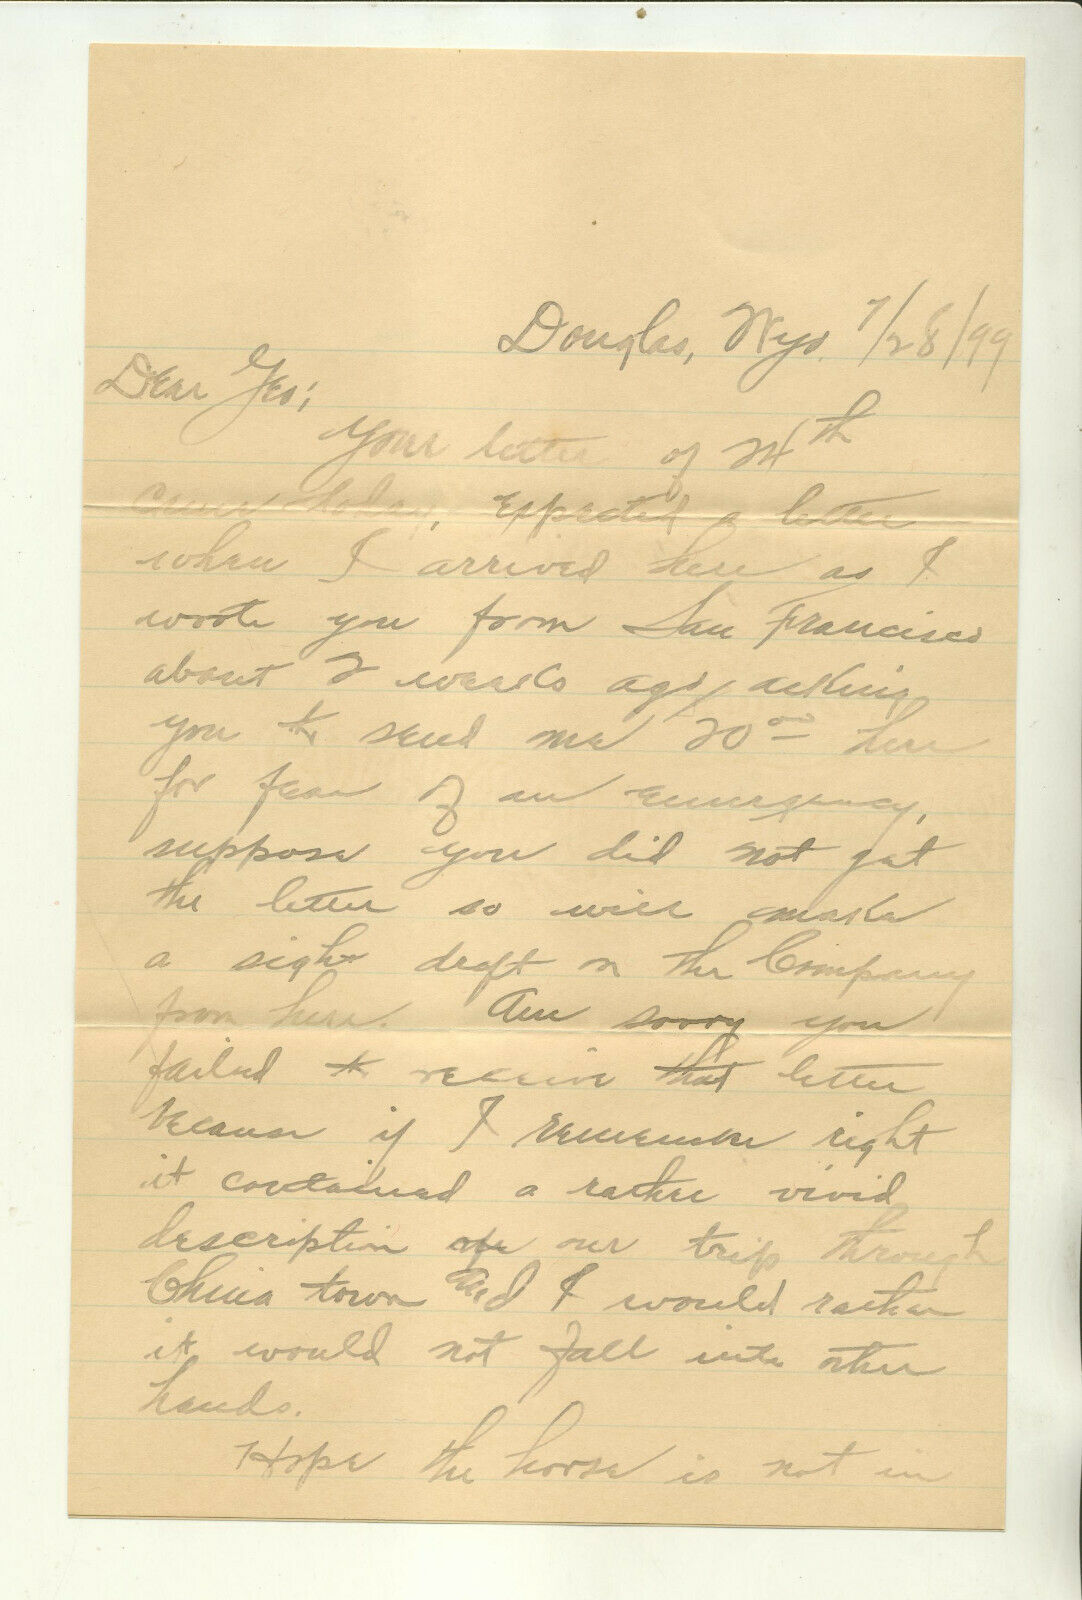 Douglas, Wyo. 7/28/99
Dear Geo;
Your letter of 24th
came today, Expected a letter
when I arrived here as I
wrote you from San Francisco
about 2 weeks ago, asking
you to send me 20.00 here
for fear of an emergency,
suppose you did not get
the letter so will make
a sight draft on the Company
from here. Am sorry you
failed to receive that letter
because if I remember right
it contained a rather vivid
description of our trip through
China town and I would rather
it would not fall into other
hands.
Hope the horse is not in